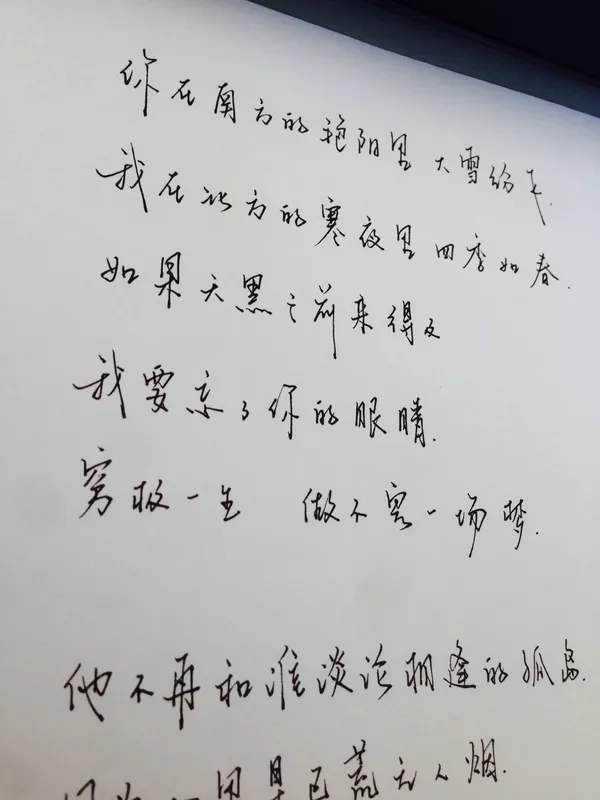 你在南方的艳阳里 大雪纷飞.
我在北方的寒夜里 四季如春.
如果天黑之前来得及
我要忘了你的眼睛.
穷极一生 做不完一场梦.
他不再和谁谈论相逢的孤岛.
里早已荒无人烟.